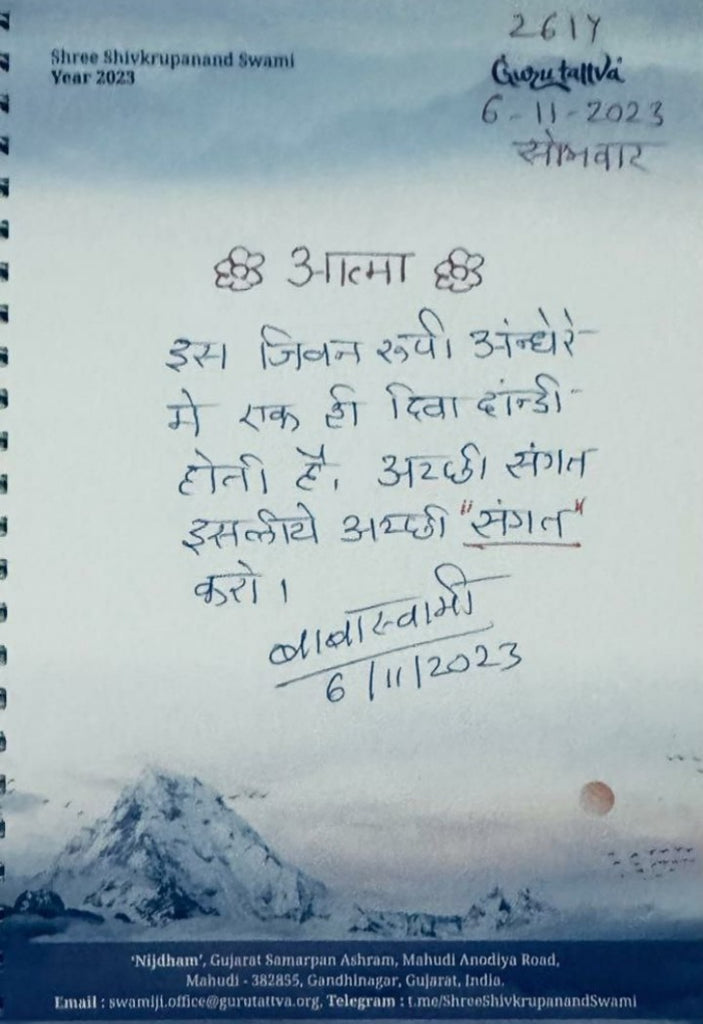 Shree Shivkrupanand Swami
Year 2023
261Y
Gurutattva
6-11-2023
सोमवार
आत्मा
इस जिवन रूपी अंन्धेरे
मे एक ही दिवा दांन्डी
होती है, अच्छी संगत
इसलीये अच्छी "संगत"
करो।
बाबास्वामी
6/11/2023
'Nijdham', Gujarat Samarpan Ashram, Mahudi Anodiya Road,
Mahudi - 382855, Gandhinagar, Gujarat, India.
Email : swamiji.office@gurutattva.org, Telegram : t.me/ShreeShivkrupanandSwami